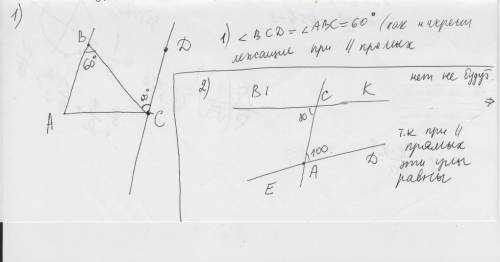 1)
B
60°
A
C
D
1) ∠BCD = ∠ABC = 60° (как накрест
лежащие при || прямых
2)
B1
C
K
80
100
A
D
E
нет не будут
⇒
т.к при ||
прямых
эти углы
равны